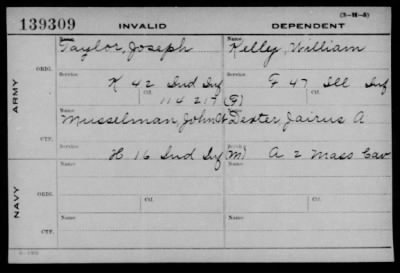 139309 INVALID DEPENDENT (3-H-5)
Name Name
Taylor, Joseph Kelly, William
ORIG.
Service Service
K 42 Ind Inf F 47 Ill Inf
Ctf. Ctf.
114 217 (F)
ARMY
Name Name
Musselman, John W Dexter Jairus A
CTF.
Service Service
H 16 Ind Inf (M) A 2 Mass Cav
Name Ctf. Name Ctf.
NAVY
ORIG.
Name Name
CTF.